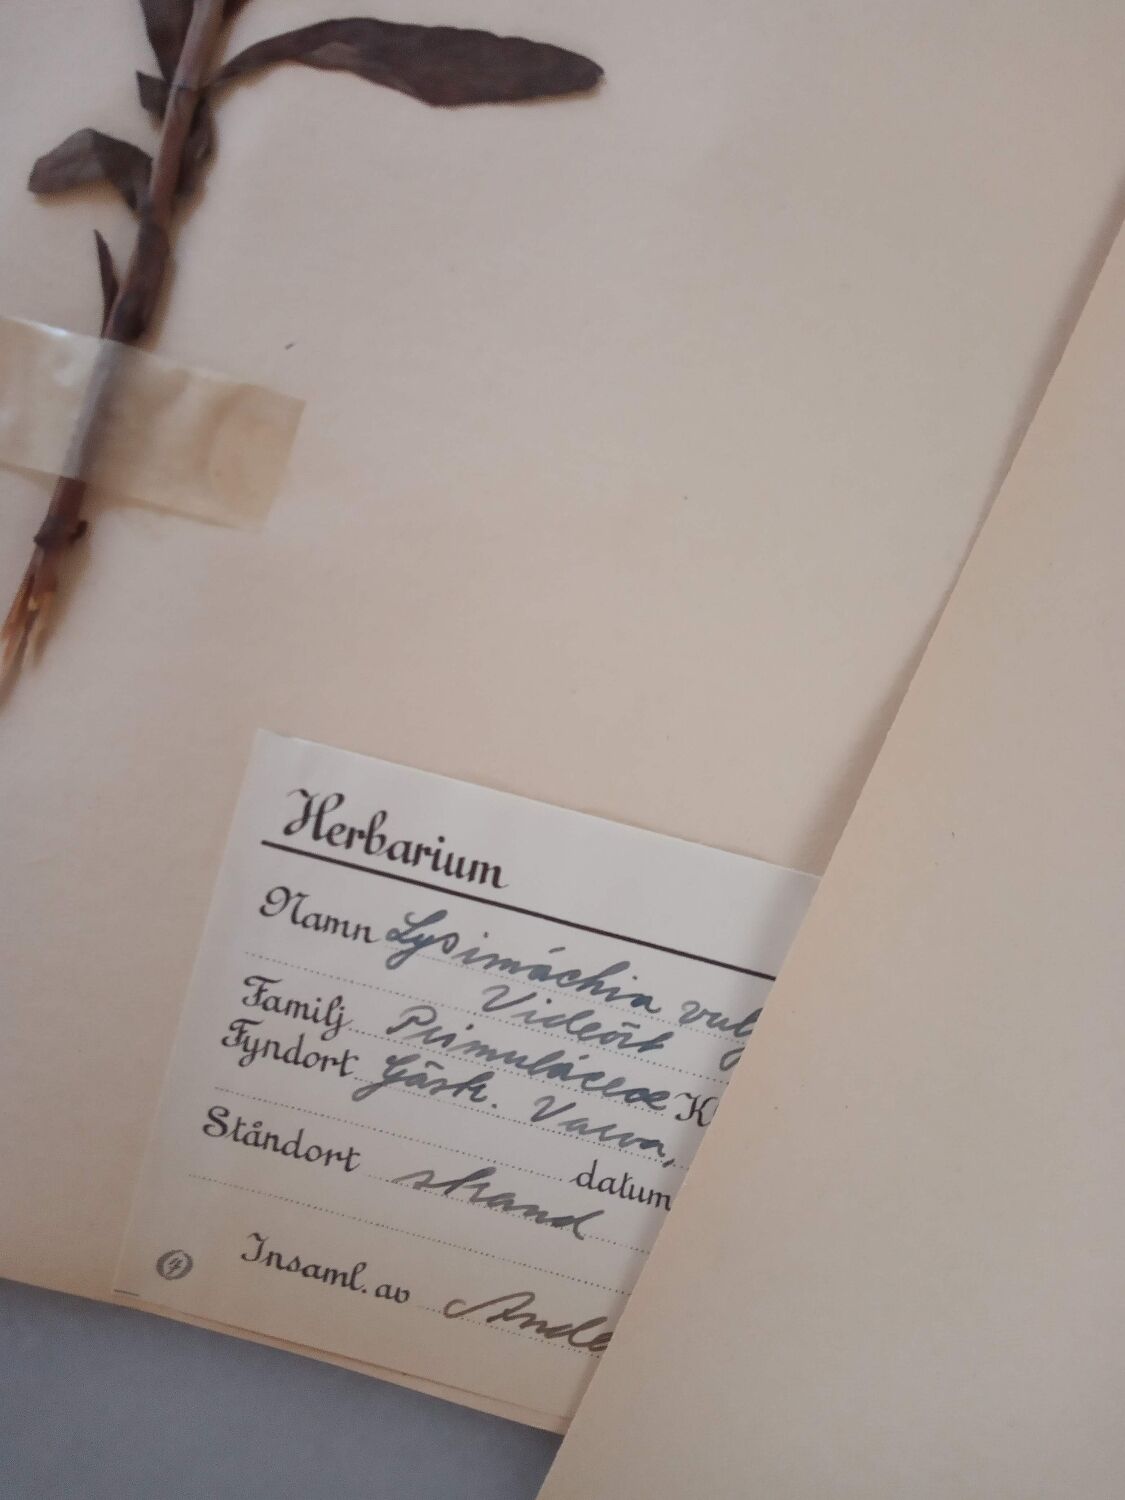 Herbarium
Namn Lysimáchia vulg
Videört
Familj Primuláceae K
Fyndort Gästr. Valbo,
datum
Ståndort strand
Insaml. av Ande
4